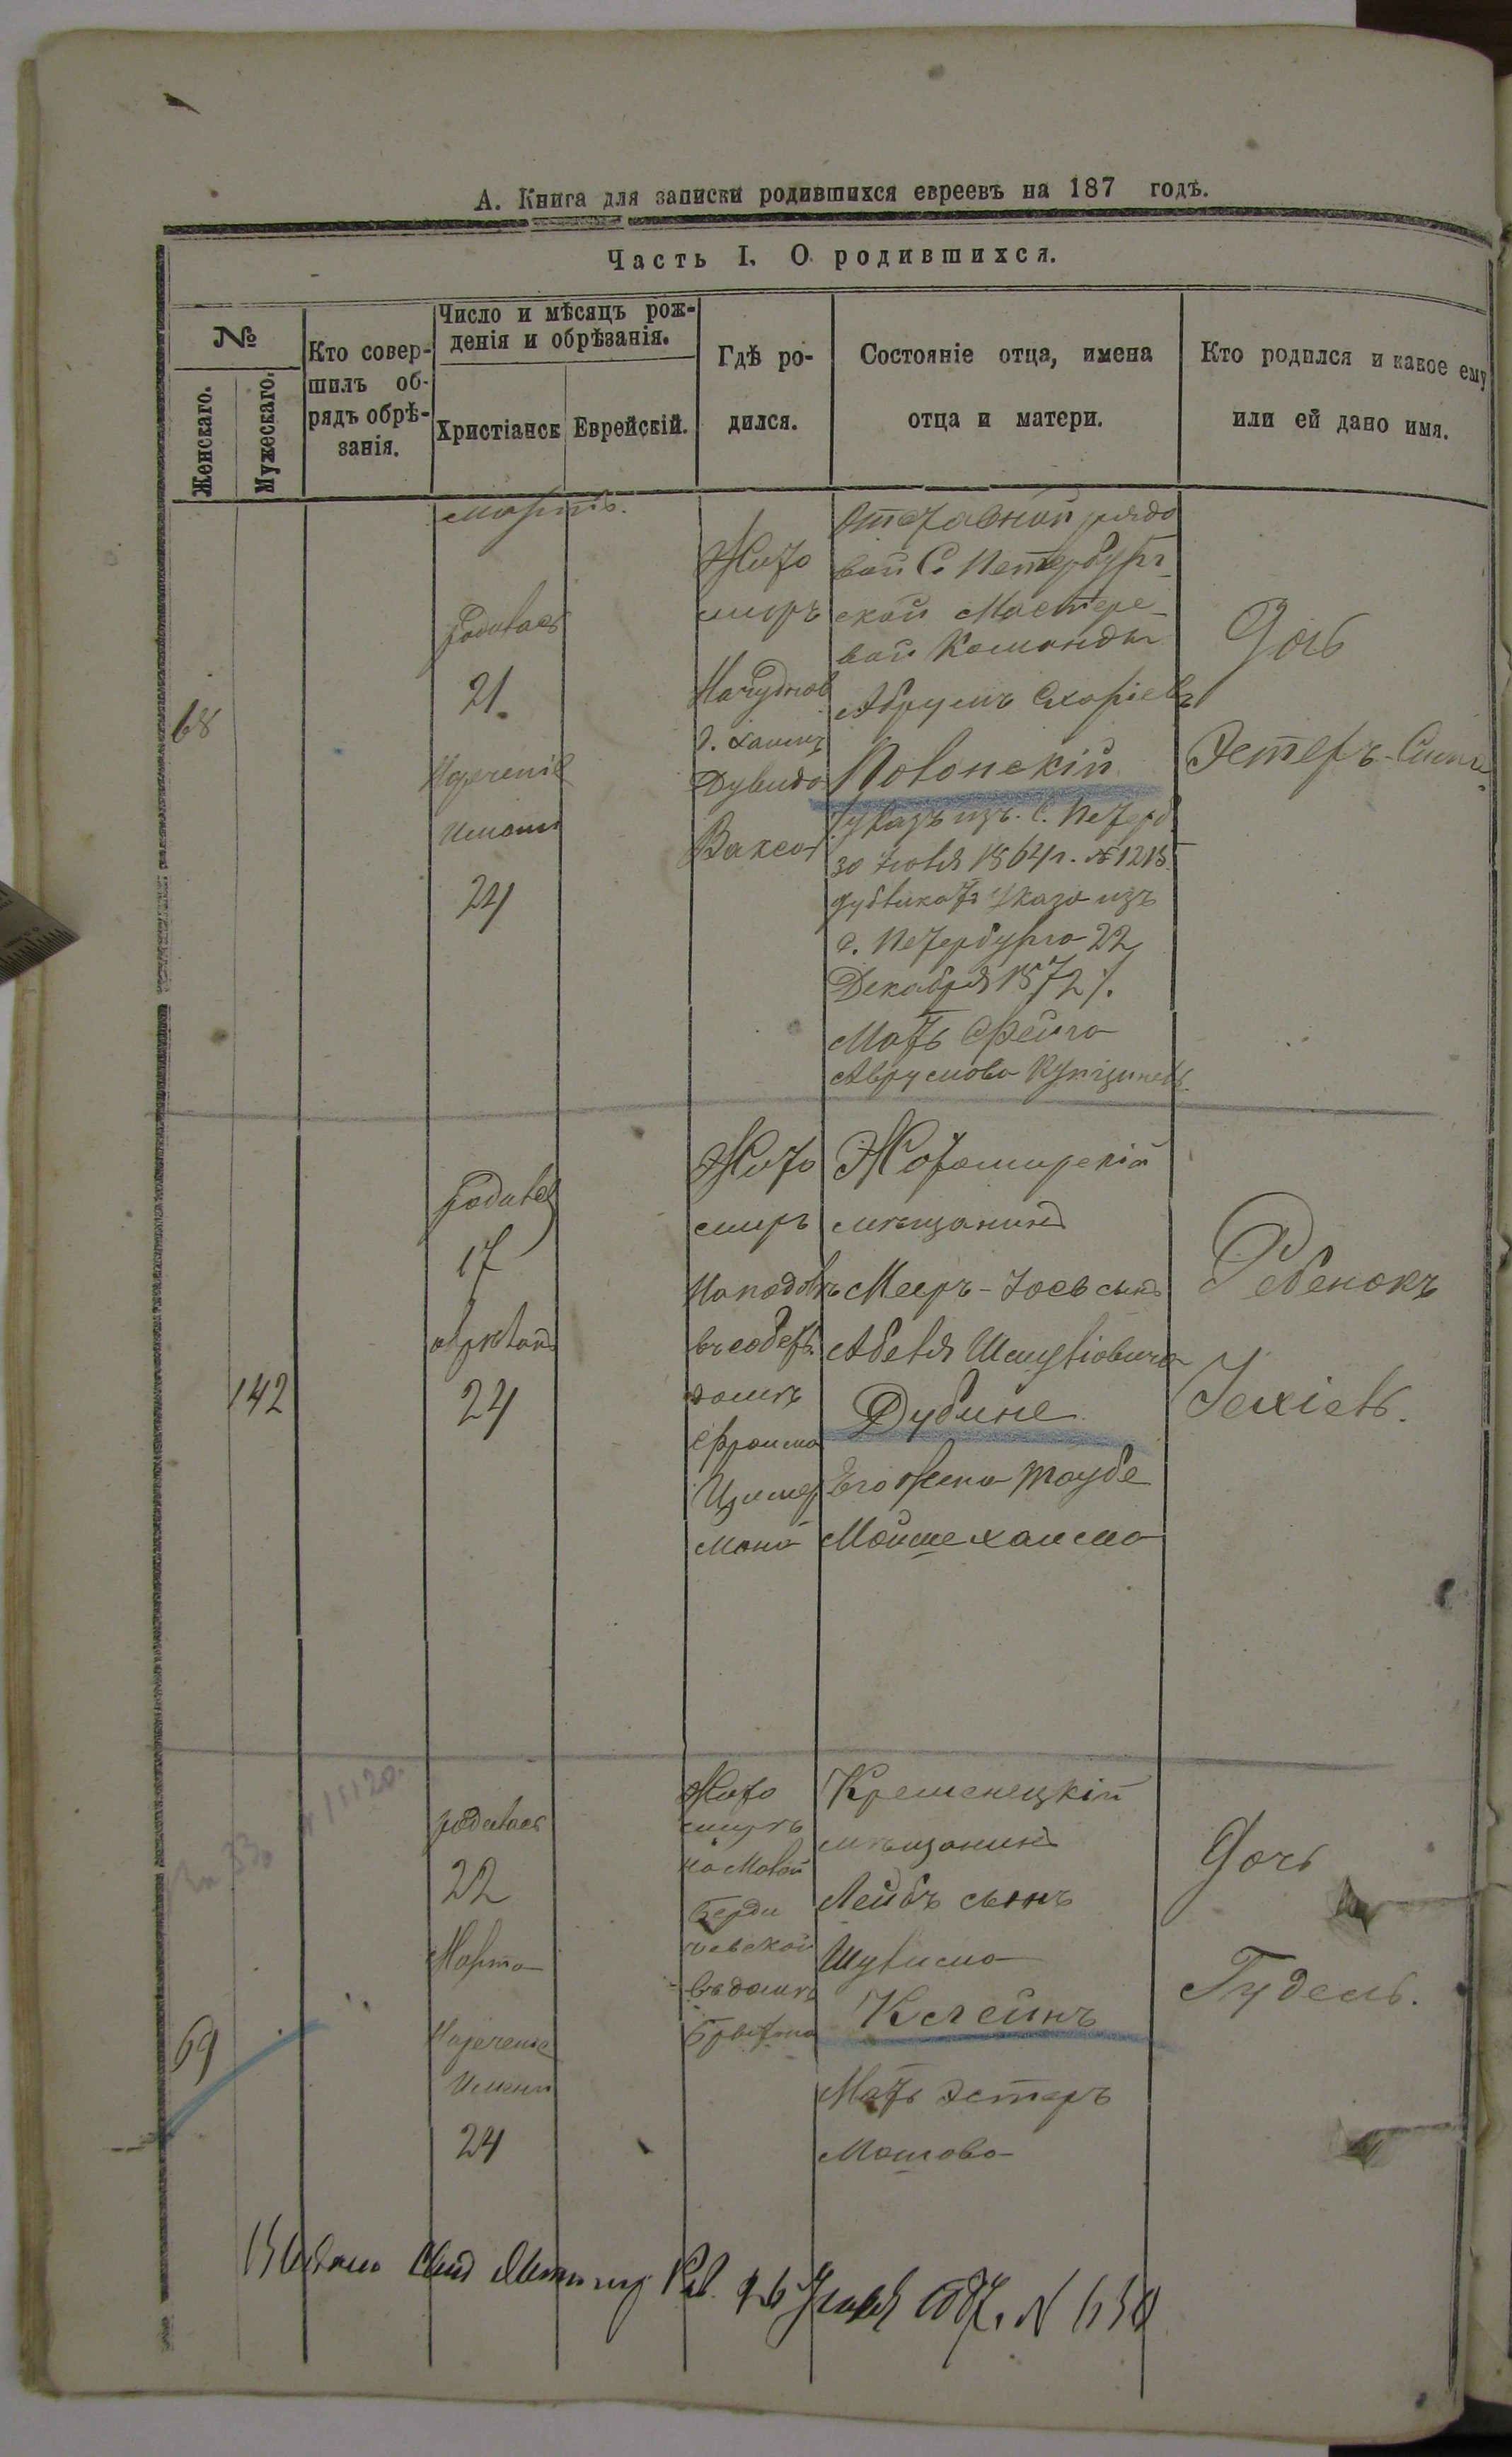 А. Книга для записки родившихся евреевъ на 187 годъ.
Часть I. О родившихся.
№
Женскаго.
Мужескаго.
Кто совер-
шилъ об-
рядъ обрѣ-
занія.
Число и мѣсяцъ рож-
денія и обрѣзанія.
Христіанск
Еврейскій.
Гдѣ ро-
дился.
Состояніе отца, имена
отца и матери.
Кто родился и какое ему
или ей дано имя.
Мартъ.
68
родилась
21
Нареченіе
имени
24
Жито
миръ
Начуднов
д. Хаимъ
Дувидъ
Отставной рядо
вой С. Петербург
ской Мастере-
вой Команды
Абрумъ
Полонскій
указъ изъ С. Петерб.
30 Іюля 1864 г. № 1218
дубликатъ указа изъ
С. Петербурга 22
Декабря 1872 г.
Мать Фейга
Аврумова
Дочь
Эстеръ
142
родился
17
обрѣзанъ
24
Жито
миръ
въ собств.
домѣ
Фроима
Цимер
мана
Житомирскій
мѣщанинъ
Мееръ-Іось сынъ
Абеля Шмуліовича
Дубине
Его жена Таубе
Мойшехаимо
Ребенокъ
Іехіель.
69
родилась
22
Марта
Нареченіе
Имени
24
Жито
миръ
на Малой
Берди
чевской
въ домѣ
Кременецкій
мѣщанинъ
Лейбъ сынъ
Шулима
Клейнъ
Мать Эстеръ
Мошова
Дочь
Гудель.